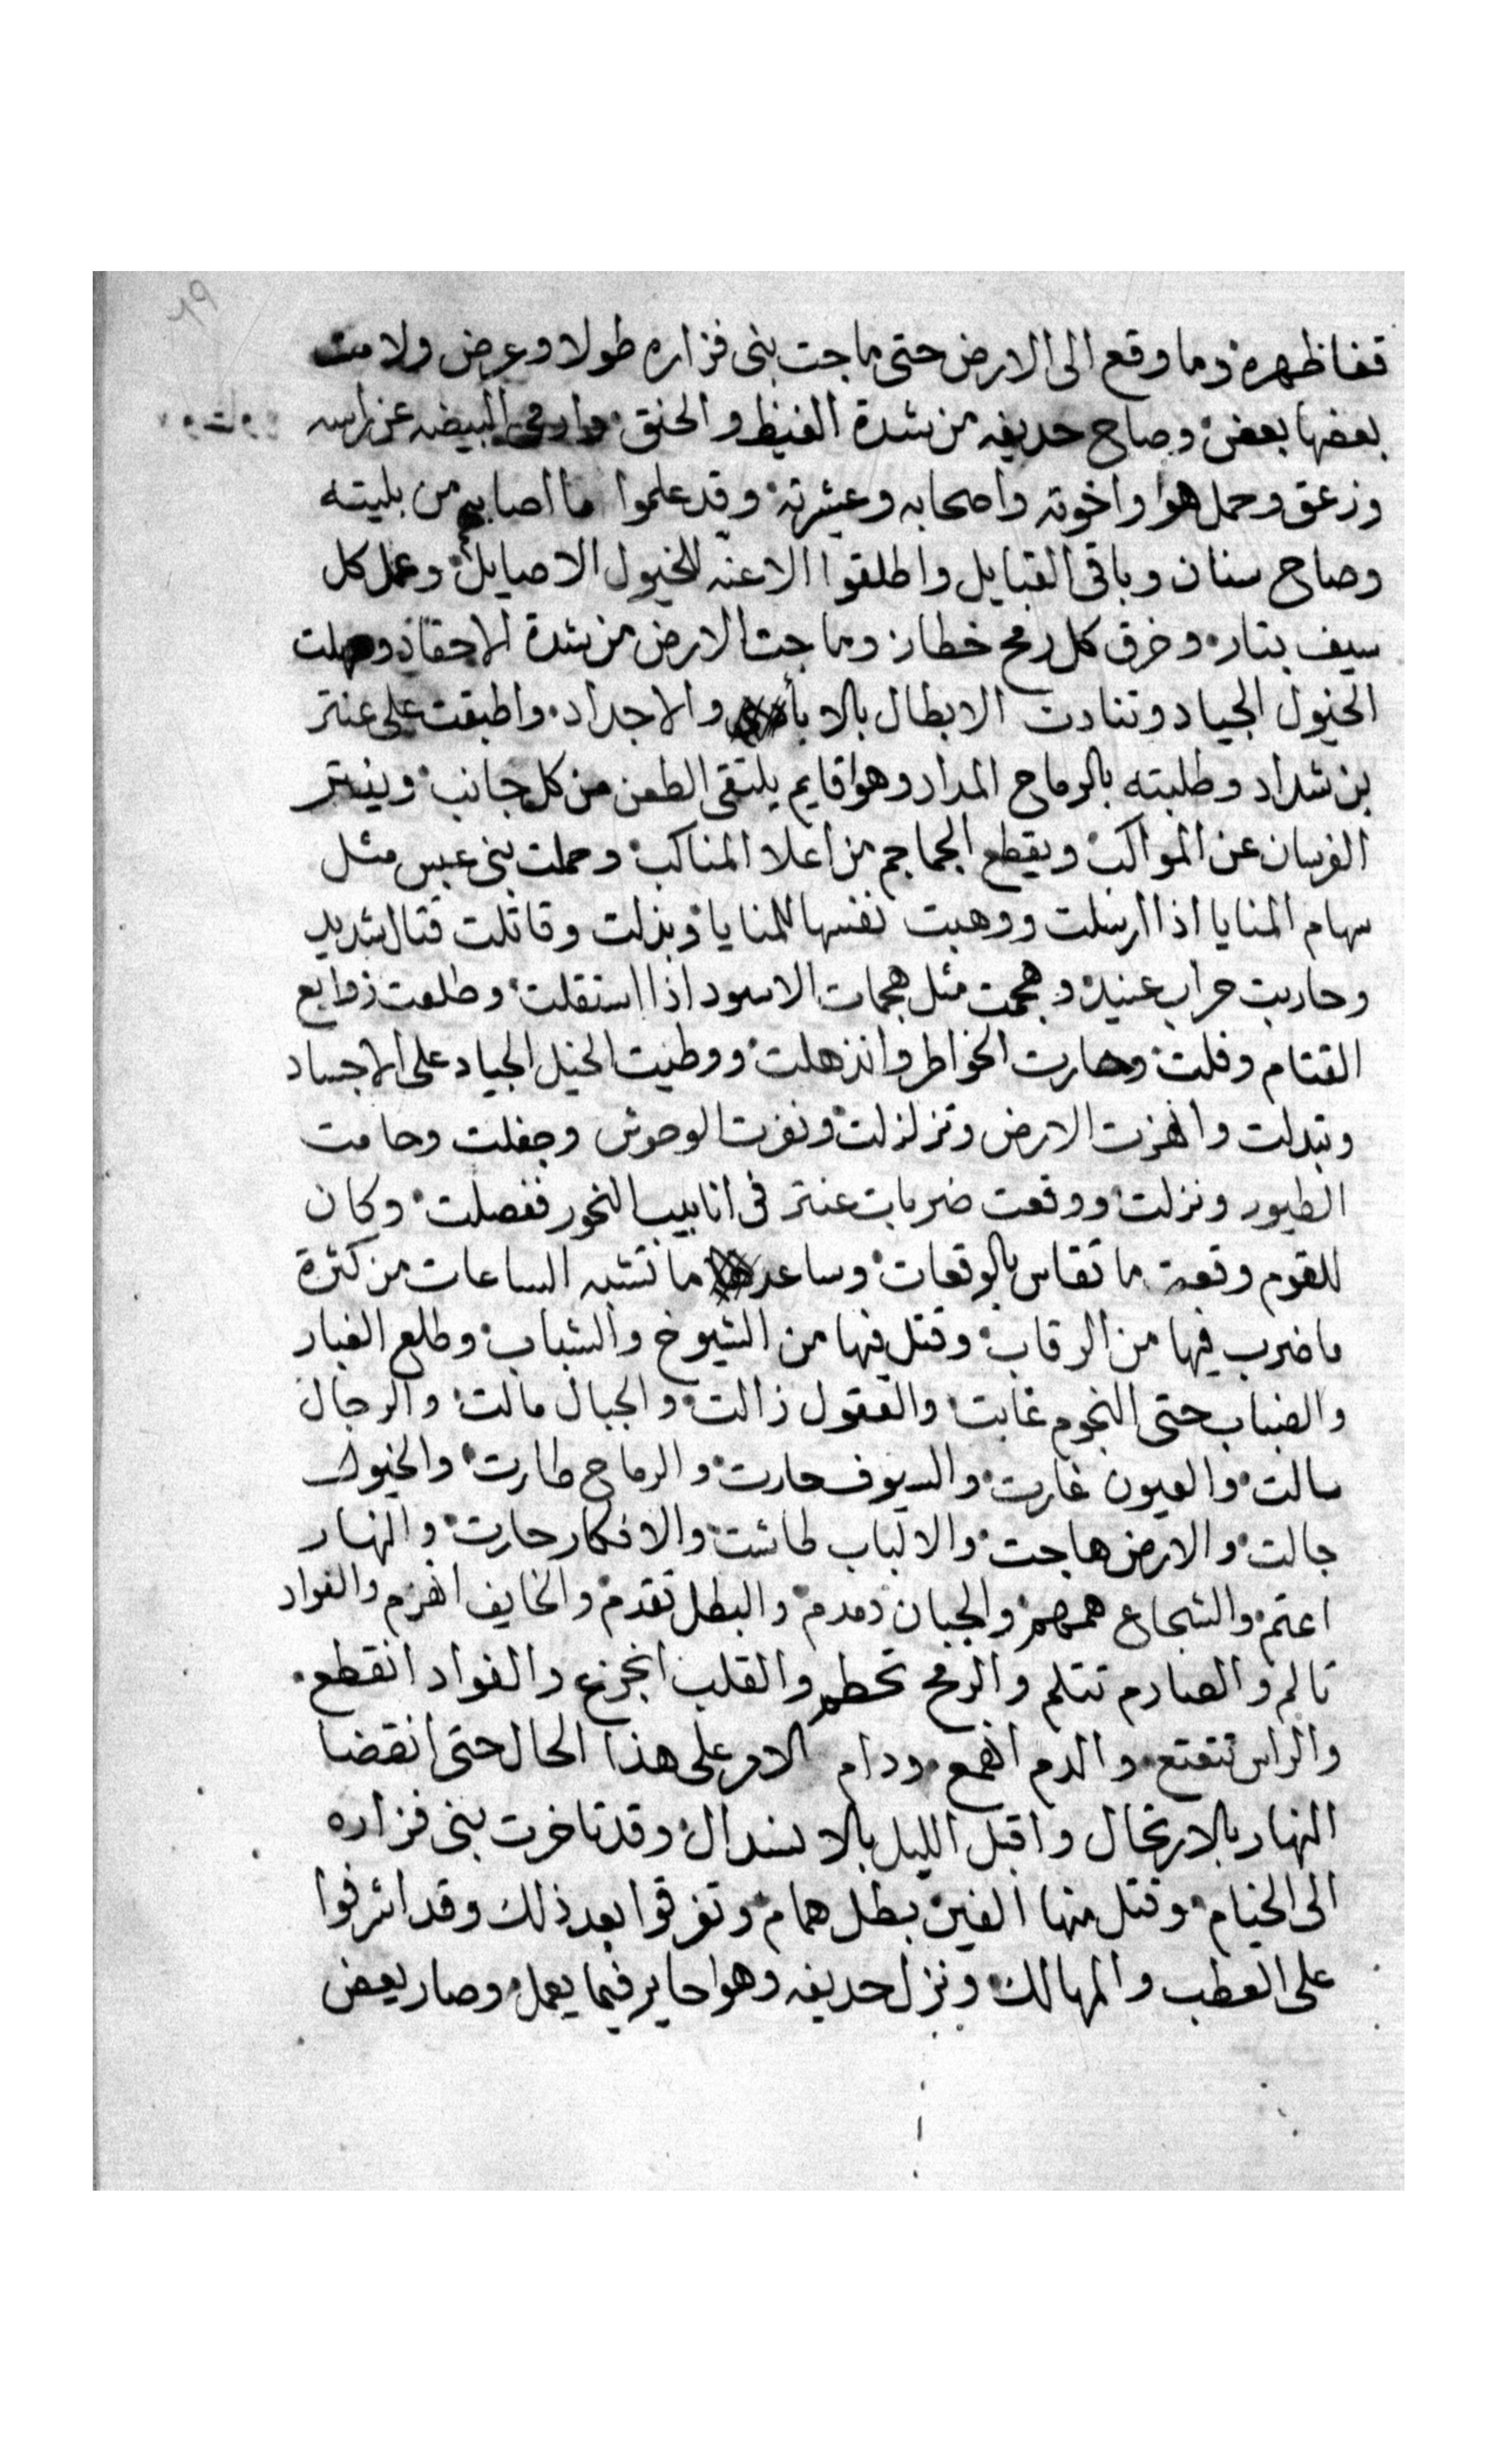 ٦٩
قفا ظهره وما وقع الى الارض حتى ماجت بنى فزاره طولا وعرض ولامت
بعضها بعض وصاح حديفه من شدة الغيظ والحنق وارمى البيضه عن راسه
وزعق وحمل هوا واخوته واصحابه وعشيرته وقد علموا ما اصابهم من بليته
وصاح سنان وباقى القبايل واطلقوا الاعنه للخيول الاصايل وعمل كل
سيف بتار وخرق كل رمح خطار وماجت الارض من شدة الاحقاد وصهلت
الخيول الجياد وتنادت الابطال بالابأ والاجداد واطبقت على عنتر
بن شداد وطلبته بالرماح المداد وهوا قايم يلتقى الطعن من كل جانب وينتر
الفرسان عن المواكب ويقطع الجماجم من اعلا المناكب وحملت بنى عبس مثل
سهام المنايا اذا ارسلت ووهبت نفسها للمنايا وبذلت وقاتلت قتال شديد
وحاربت حراب عنيد وهجمت مثل هجمات الاسود اذا استقلت وطلعت زوابع
القتام وفلت وحارت الخواطر وانذهلت ووطيت الخيل الجياد على الاجساد
وتبدلت واهزت الارض وتزلزلت ونفرت الوحوش وجفلت وحامت
الطيور ونزلت ووقعت ضربات عنتر فى انابيب النحور ففصلت وكان
للقوم وقعة ما تقاس بالوقعات وساعه ما تشبه الساعات من كثرة
ما ضرب فيها من الرقاب وقتل فيها من الشيوخ والشباب وطلع الغبار
والضباب حتى النجوم غابت والعقول زالت والجبال مالت والرجال
سالت والعيون غارت والسيوف حارت والرماح طارت والخيول
جالت والارض هاجت والالباب طاشت والافكار حارت والنهار
اعتم والشجاع همهم والجبان دمدم والبطل تقدم والخايف انهزم والفواد
تالم والصارم تتلم والرمح تحطم والقلب انجزع والفواد انقطع
والراس تتقتع والدم انهمع ودام الامر على هذا الحال حتى انقضا
النهار بالارتحال واقبل الليل بالانسدال وقد تاخرت بنى فزاره
الى الخيام وقتل منها الفين بطل همام وتفرقوا بعد ذلك وقد اشرفوا
على العطب والمهالك ونزل حديفه وهوا حاير فيما يعمل وصار يعض